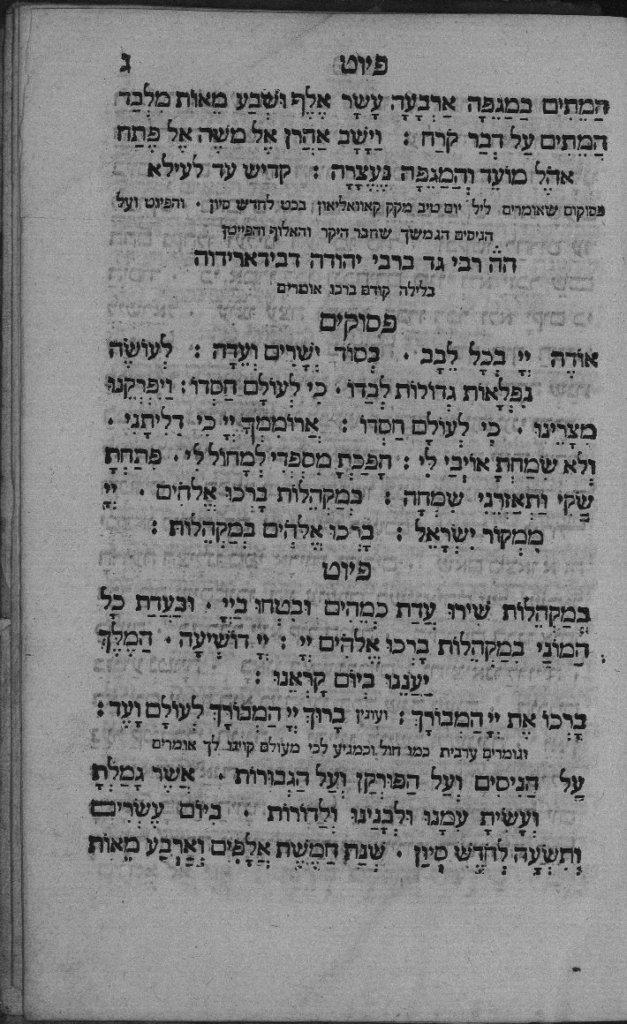 פיוט ג
הַמֵּתִים בַּמַּגֵּפָה אַרְבָּעָה עָשָׂר אֶלֶף וּשְׁבַע מֵאוֹת מִלְּבַד
הַמֵּתִים עַל דְּבַר קֹרַח : וַיָּשָׁב אַהֲרֹן אֶל מֹשֶׁה אֶל פֶּתַח
אֹהֶל מוֹעֵד וְהַמַּגֵּפָה נֶעֱצָרָה : קדיש עד לעילא
פסוקים שאומרים ליל יום טיב מקק קאוואליאון בכט לחדש סיון . והפיוט ועל
הניסים הנמשך שחבר היקר והאלוף והפייטן
הה רבי גד ברבי יהודה דבידארידוה
בלילה קודם ברכו אומרים
פסוקים
אוֹדֶה יְיָ בְּכָל לֵבָב . בְּסוֹד יְשָׁרִים וְעֵדָה : לְעוֹשֶׂה
נִפְלָאוֹת גְּדוֹלוֹת לְבַדּוֹ . כִּי לְעוֹלָם חַסְדּוֹ : וַיִּפְרְקֵנוּ
מִצָּרֵינוּ . כִּי לְעוֹלָם חַסְדּוֹ : אֲרוֹמִמְךָ יְיָ כִּי דִלִּיתָנִי .
וְלֹא שִׂמַּחְתָּ אוֹיְבַי לִי : הָפַכְתָּ מִסְפְּדִי לְמָחוֹל לִי . פִּתַּחְתָּ
שַׂקִּי וַתְּאַזְּרֵנִי שִׂמְחָה : בְּמַקְהֵלוֹת בָּרְכוּ אֱלֹהִים . יְיָ
מִמְּקוֹר יִשְׂרָאֵל : בָּרְכוּ אֱלֹהִים בְּמַקְהֵלוֹת :
פיוט
בְּמַקְהֵלוֹת שִׁירוּ עֲדַת כְּמֵהִים וּבִטְחוּ בַּיְיָ . וּבַעֲדַת כָּל
הֲמוֹנַי בְּמַקְהֵלוֹת בָּרְכוּ אֱלֹהִים יְיָ : יְיָ הוֹשִׁיעָה . הַמֶּלֶךְ
יַעֲנֵנוּ בְיוֹם קָרְאֵנוּ :
בָּרְכוּ אֶת יְיָ הַמְבוֹרָךְ : ועונין בָּרוּךְ יְיָ הַמְבוֹרָךְ לְעוֹלָם וָעֶד :
וגומרים ערבית כמו חול וכמגיע לכי מעולם קוינו לך אומרים
עַל הַנִּיסִים וְעַל הַפּוּרְקָן וְעַל הַגְּבוּרוֹת . אֲשֶׁר גָּמַלְתָּ
וְעָשִׂיתָ עִמָּנוּ וּלְבָנֵינוּ וְלַדּוֹרוֹת . בְּיוֹם עֶשְׂרִים
וְתִשְׁעָה לְחֹדֶשׁ סִיוָן . שְׁנַת חֲמֵשֶׁת אֲלָפִים וְאַרְבַּע מֵאוֹת